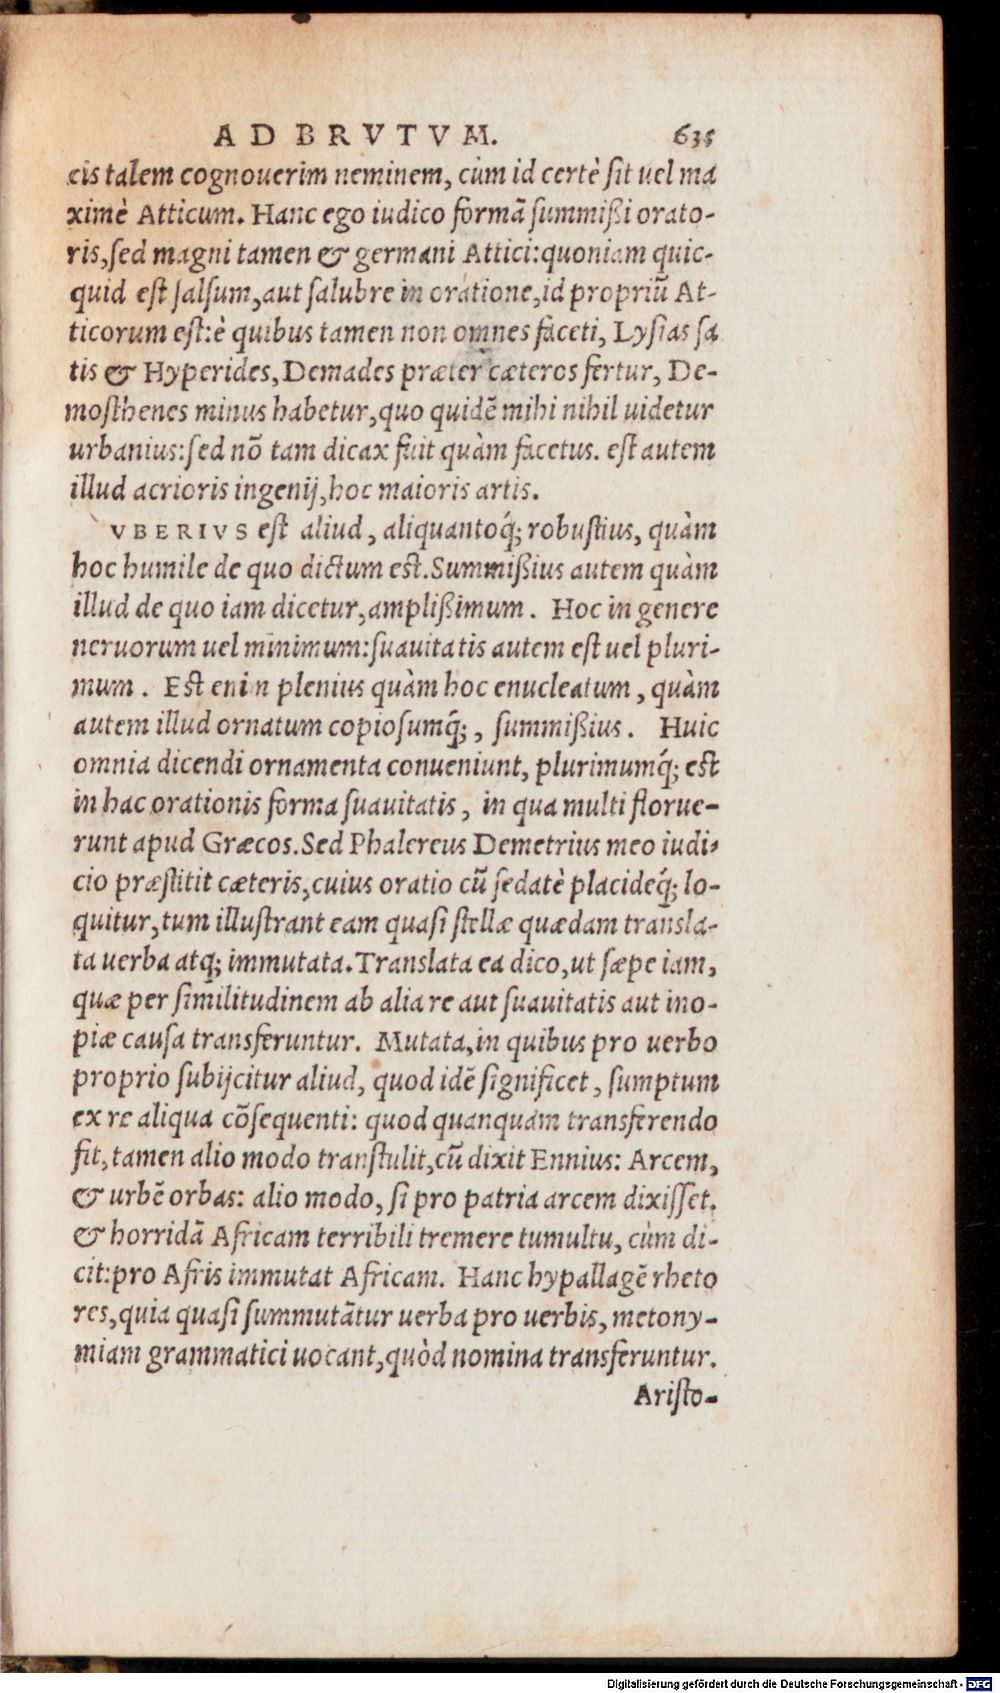 AD BRVTVM. 635
cis talem cognouerim neminem, cùm id certè sit uel ma
ximè Atticum. Hanc ego iudico formã summißi orato-
ris, sed magni tamen & germani Attici: quoniam quic-
quid est salsum, aut salubre in oratione, id propriũ At-
ticorum est: è quibus tamen non omnes faceti, Lysias sa
tis & Hyperides, Demades præter cæteros fertur, De-
mosthenes minus habetur, quo quidẽ mihi nihil uidetur
urbanius: sed nõ tam dicax fuit quàm facetus. est autem
illud acrioris ingenij, hoc maioris artis.
VBERIVS est aliud, aliquantoq́; robustius, quàm
hoc humile de quo dictum est. Summißius autem quàm
illud de quo iam dicetur, amplißimum. Hoc in genere
neruorum uel minimum: suauitatis autem est uel pluri-
mum. Est enim plenius quàm hoc enucleatum, quàm
autem illud ornatum copiosumq́;, summißius. Huic
omnia dicendi ornamenta conueniunt, plurimumq́; est
in hac orationis forma suauitatis, in qua multi florue-
runt apud Græcos. Sed Phalereus Demetrius meo iudi-
cio præstitit cæteris, cuius oratio cũ sedatè placideq́; lo-
quitur, tum illustrant eam quasi stellæ quædam transla-
ta uerba atq; immutata. Translata ea dico, ut sæpe iam,
quæ per similitudinem ab alia re aut suauitatis aut ino-
piæ causa transferuntur. Mutata, in quibus pro uerbo
proprio subijcitur aliud, quod idẽ significet, sumptum
ex re aliqua cõsequenti: quod quanquam transferendo
fit, tamen alio modo transtulit, cũ dixit Ennius: Arcem,
& urbẽ orbas: alio modo, si pro patria arcem dixisset.
& horridã Africam terribili tremere tumultu, cùm di-
cit: pro Afris immutat Africam. Hanc hypallagẽ rheto
res, quia quasi summutãtur uerba pro uerbis, metony-
miam grammatici uocant, quòd nomina transferuntur.
Aristo-
Digitalisierung gefördert durch die Deutsche Forschungsgemeinschaft - DFG